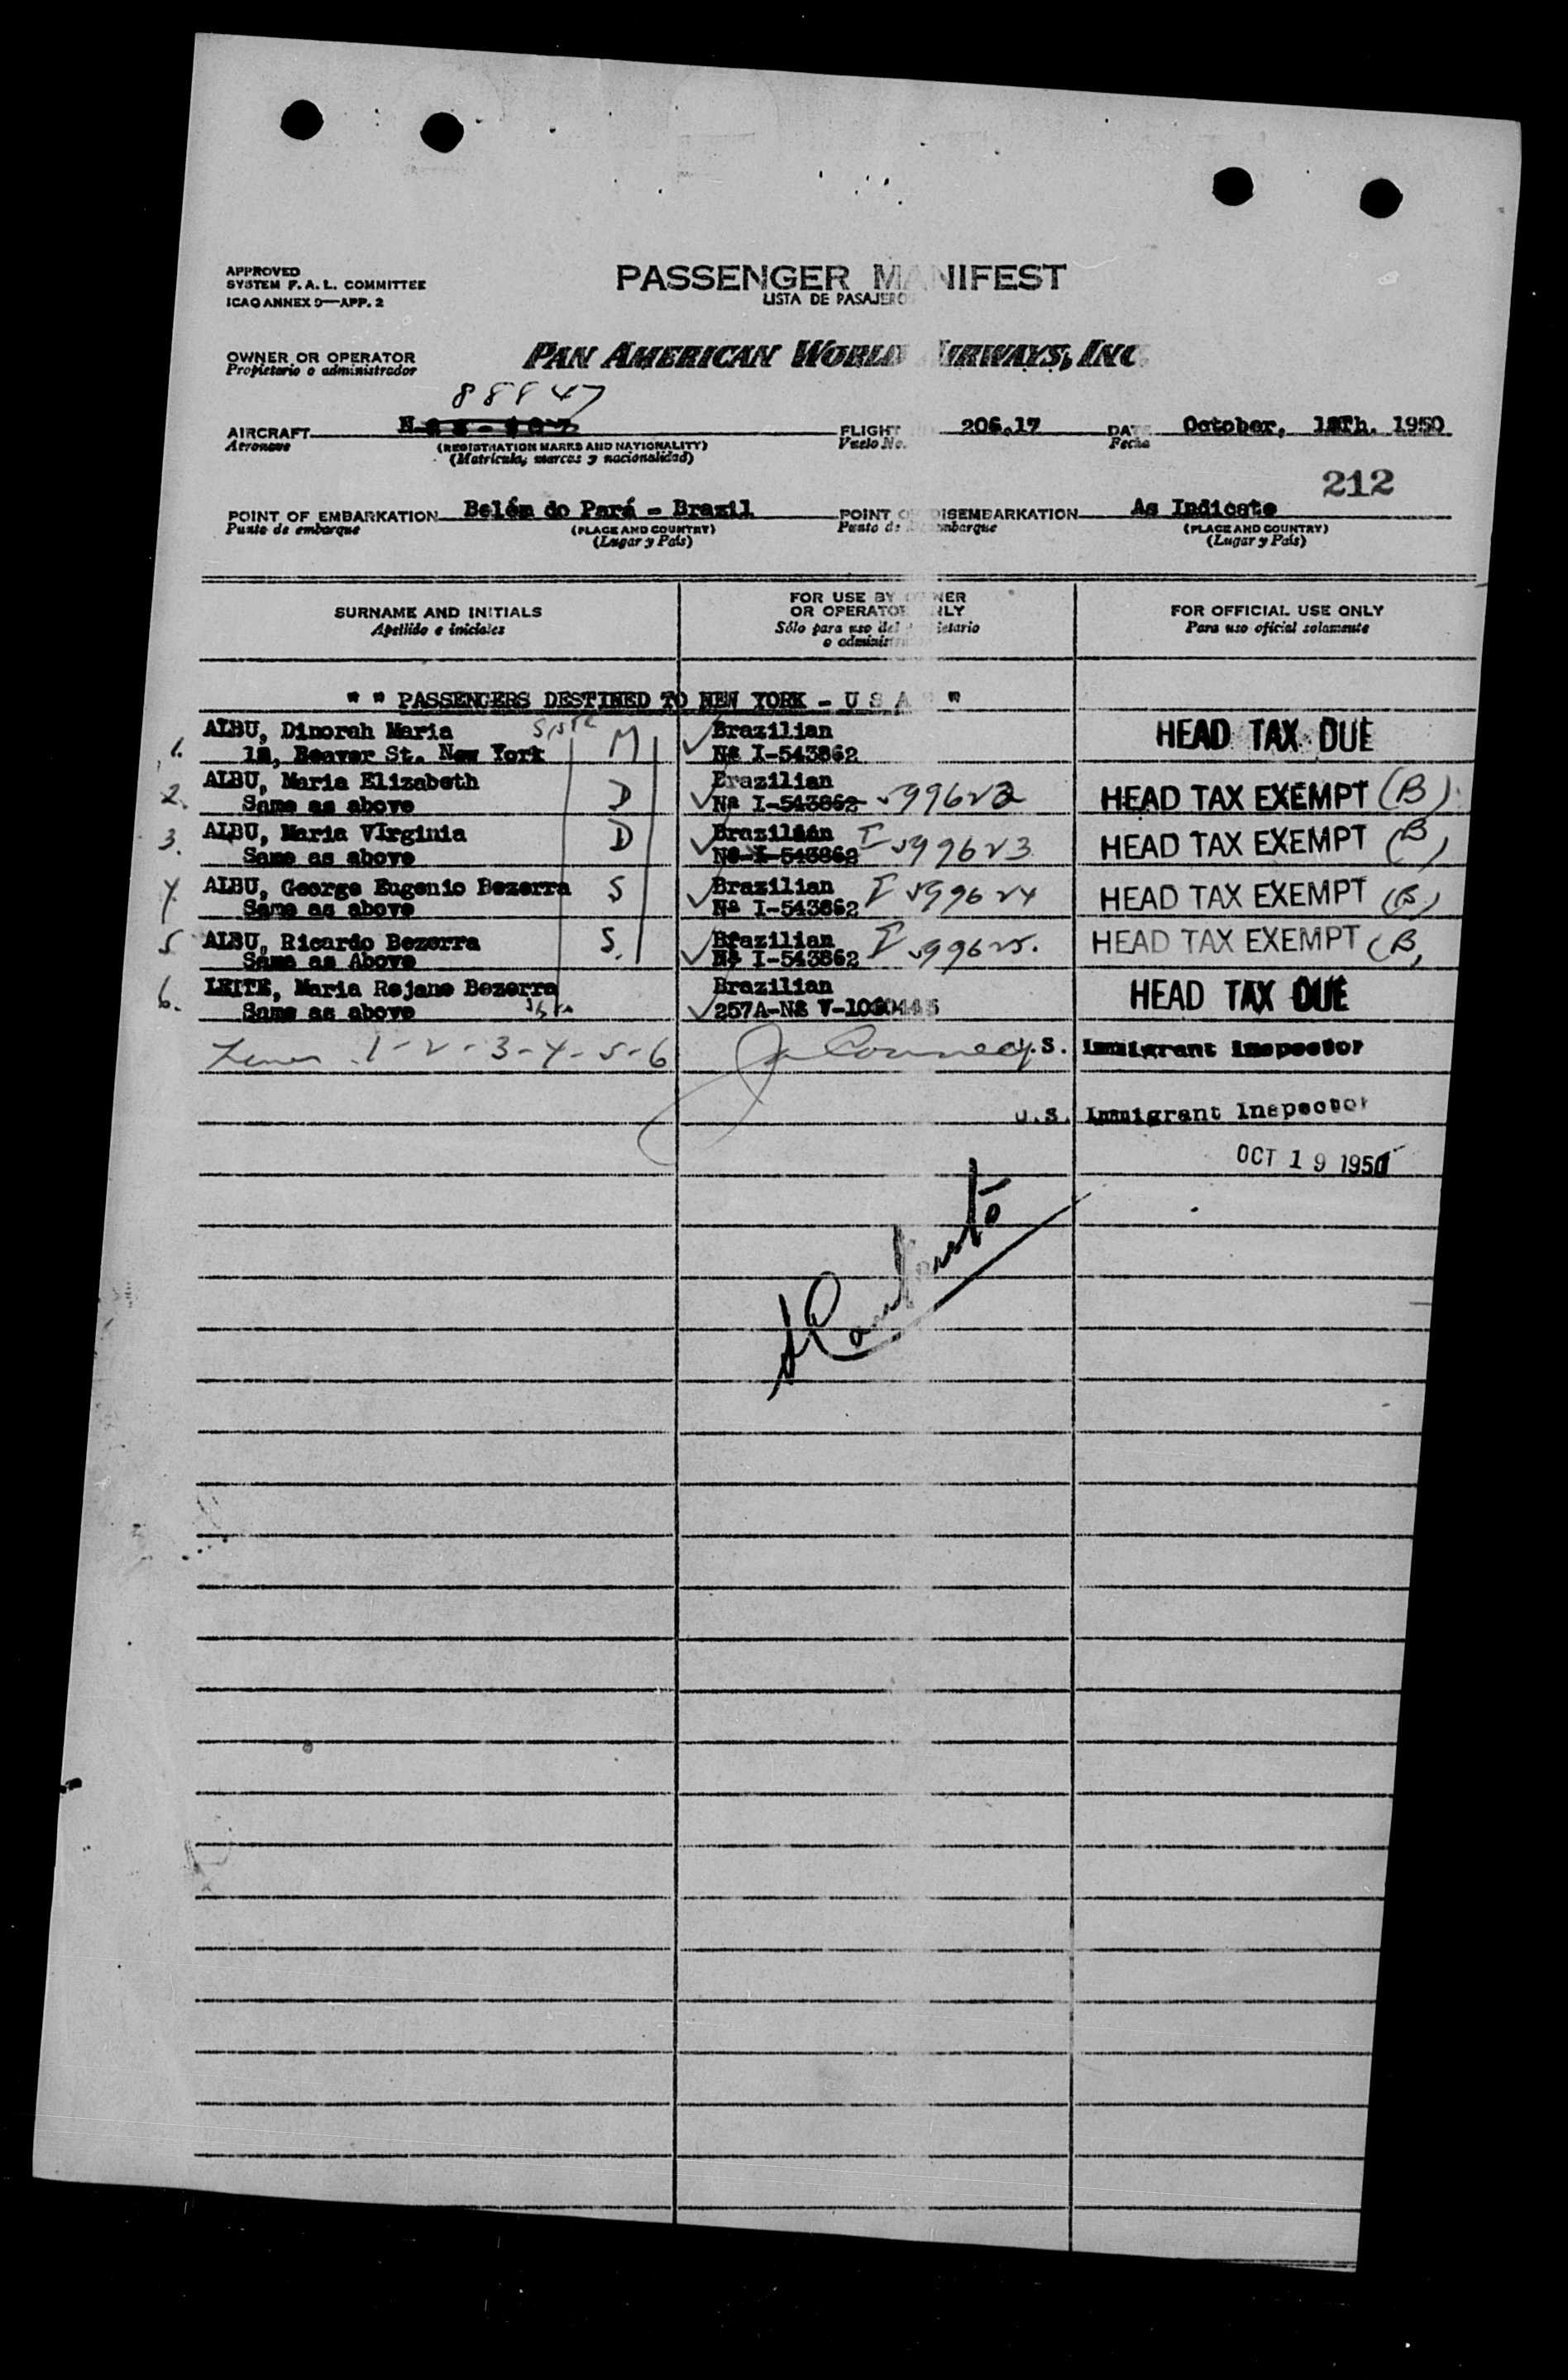 APPROVED
SYSTEM F. A. L. COMMITTEE
ICAO ANNEX 9—APP. 2
PASSENGER MANIFEST
LISTA DE PASAJERO
OWNER OR OPERATOR
Propietario o administrador
PAN AMERICAN WORLD AIRWAYS, INC.
88847
AIRCRAFT N
Aeronave
(REGISTRATION MARKS AND NATIONALITY)
(Matrícula, marcas y nacionalidad)
FLIGHT 206.17
Vuelo No.
DATE October, 18Th. 1950
Fecha
212
POINT OF EMBARKATION Belém do Pará - Brazil
Punto de embarque
(PLACE AND COUNTRY)
(Lugar y País)
POINT OF DISEMBARKATION As Indicate
Punto de desembarque
(PLACE AND COUNTRY)
(Lugar y País)
SURNAME AND INITIALS
Apellido e iniciales
FOR USE BY OWNER
OR OPERATOR ONLY
Sólo para uso del propietario
o administrador
FOR OFFICIAL USE ONLY
Para uso oficial solamente
" " PASSENGERS DESTINED TO NEW YORK - U S A "
1. ALBU, Dinorah Maria M Brazilian HEAD TAX DUE
Beaver St. New York Nº I-543862
2. ALBU, Maria Elizabeth D Brazilian HEAD TAX EXEMPT (B)
Same as above Nº I-543862 599622
3. ALBU, Maria VIrginia D Brazilian HEAD TAX EXEMPT (B)
Same as above Nº I-543862 I 599623
4. ALBU, George Eugenio Bezerra S Brazilian HEAD TAX EXEMPT (B)
Same as above Nº I-543862 I 599624
5 ALBU, Ricardo Bezerra S. Brazilian HEAD TAX EXEMPT (B)
Same as Above Nº I-543862 I 599625.
6. LEITE, Maria Rejane Bezerra Brazilian HEAD TAX DUE
Same as above 257A-Nº
1-2-3-4-5-6 U.S. Immigrant Inspector
U.S. Immigrant Inspector
OCT 19 1950